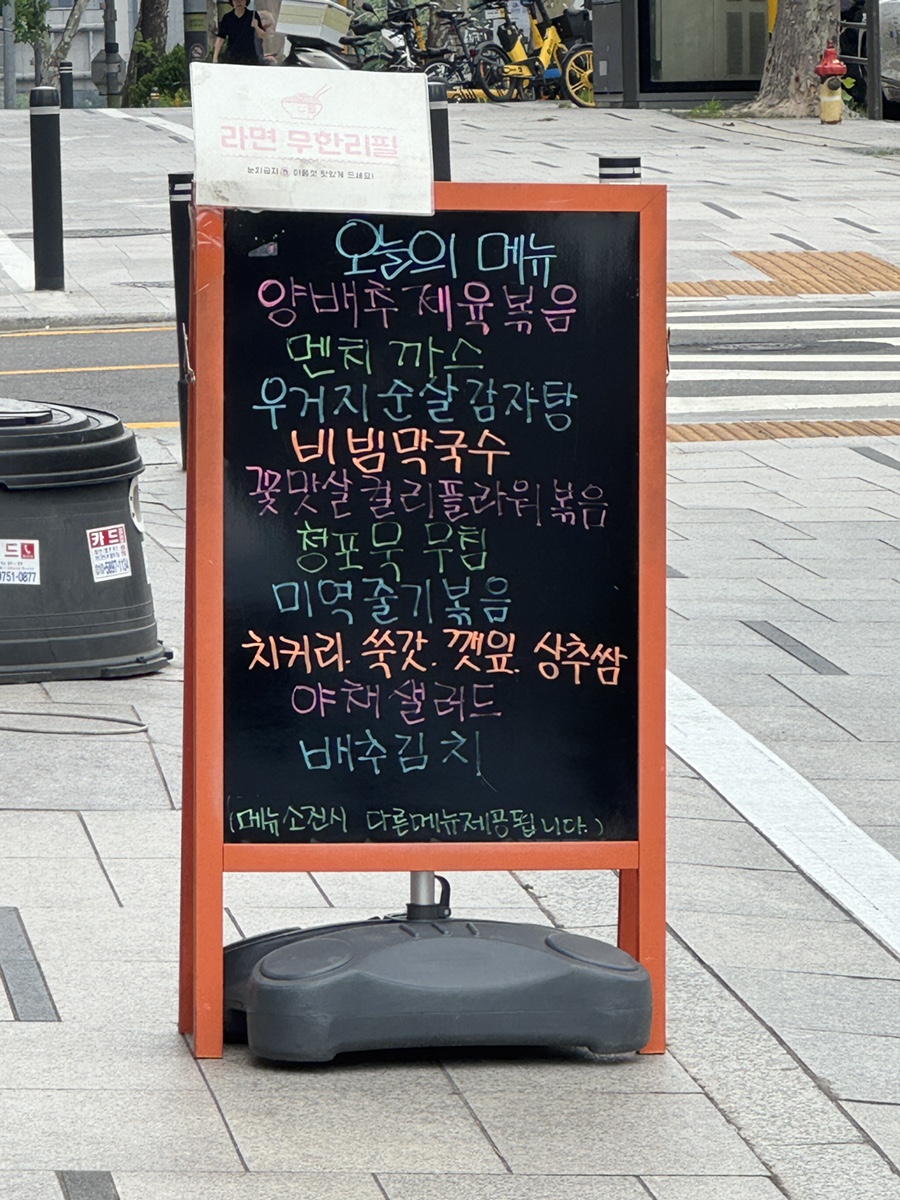 라면 무한리필
눈치금지 이용껏 맛있게 드세요!
오늘의 메뉴
양배추 제육볶음
멘치 까스
우거지 순살 감자탕
비빔막국수
꽃맛살 컬리플라워 볶음
청포묵 무침
미역줄기볶음
치커리. 쑥갓. 깻잎. 상추쌈
야채 샐러드
배추김치
(메뉴소진시 다른메뉴제공됩니다.)
드
9751-0877
카드